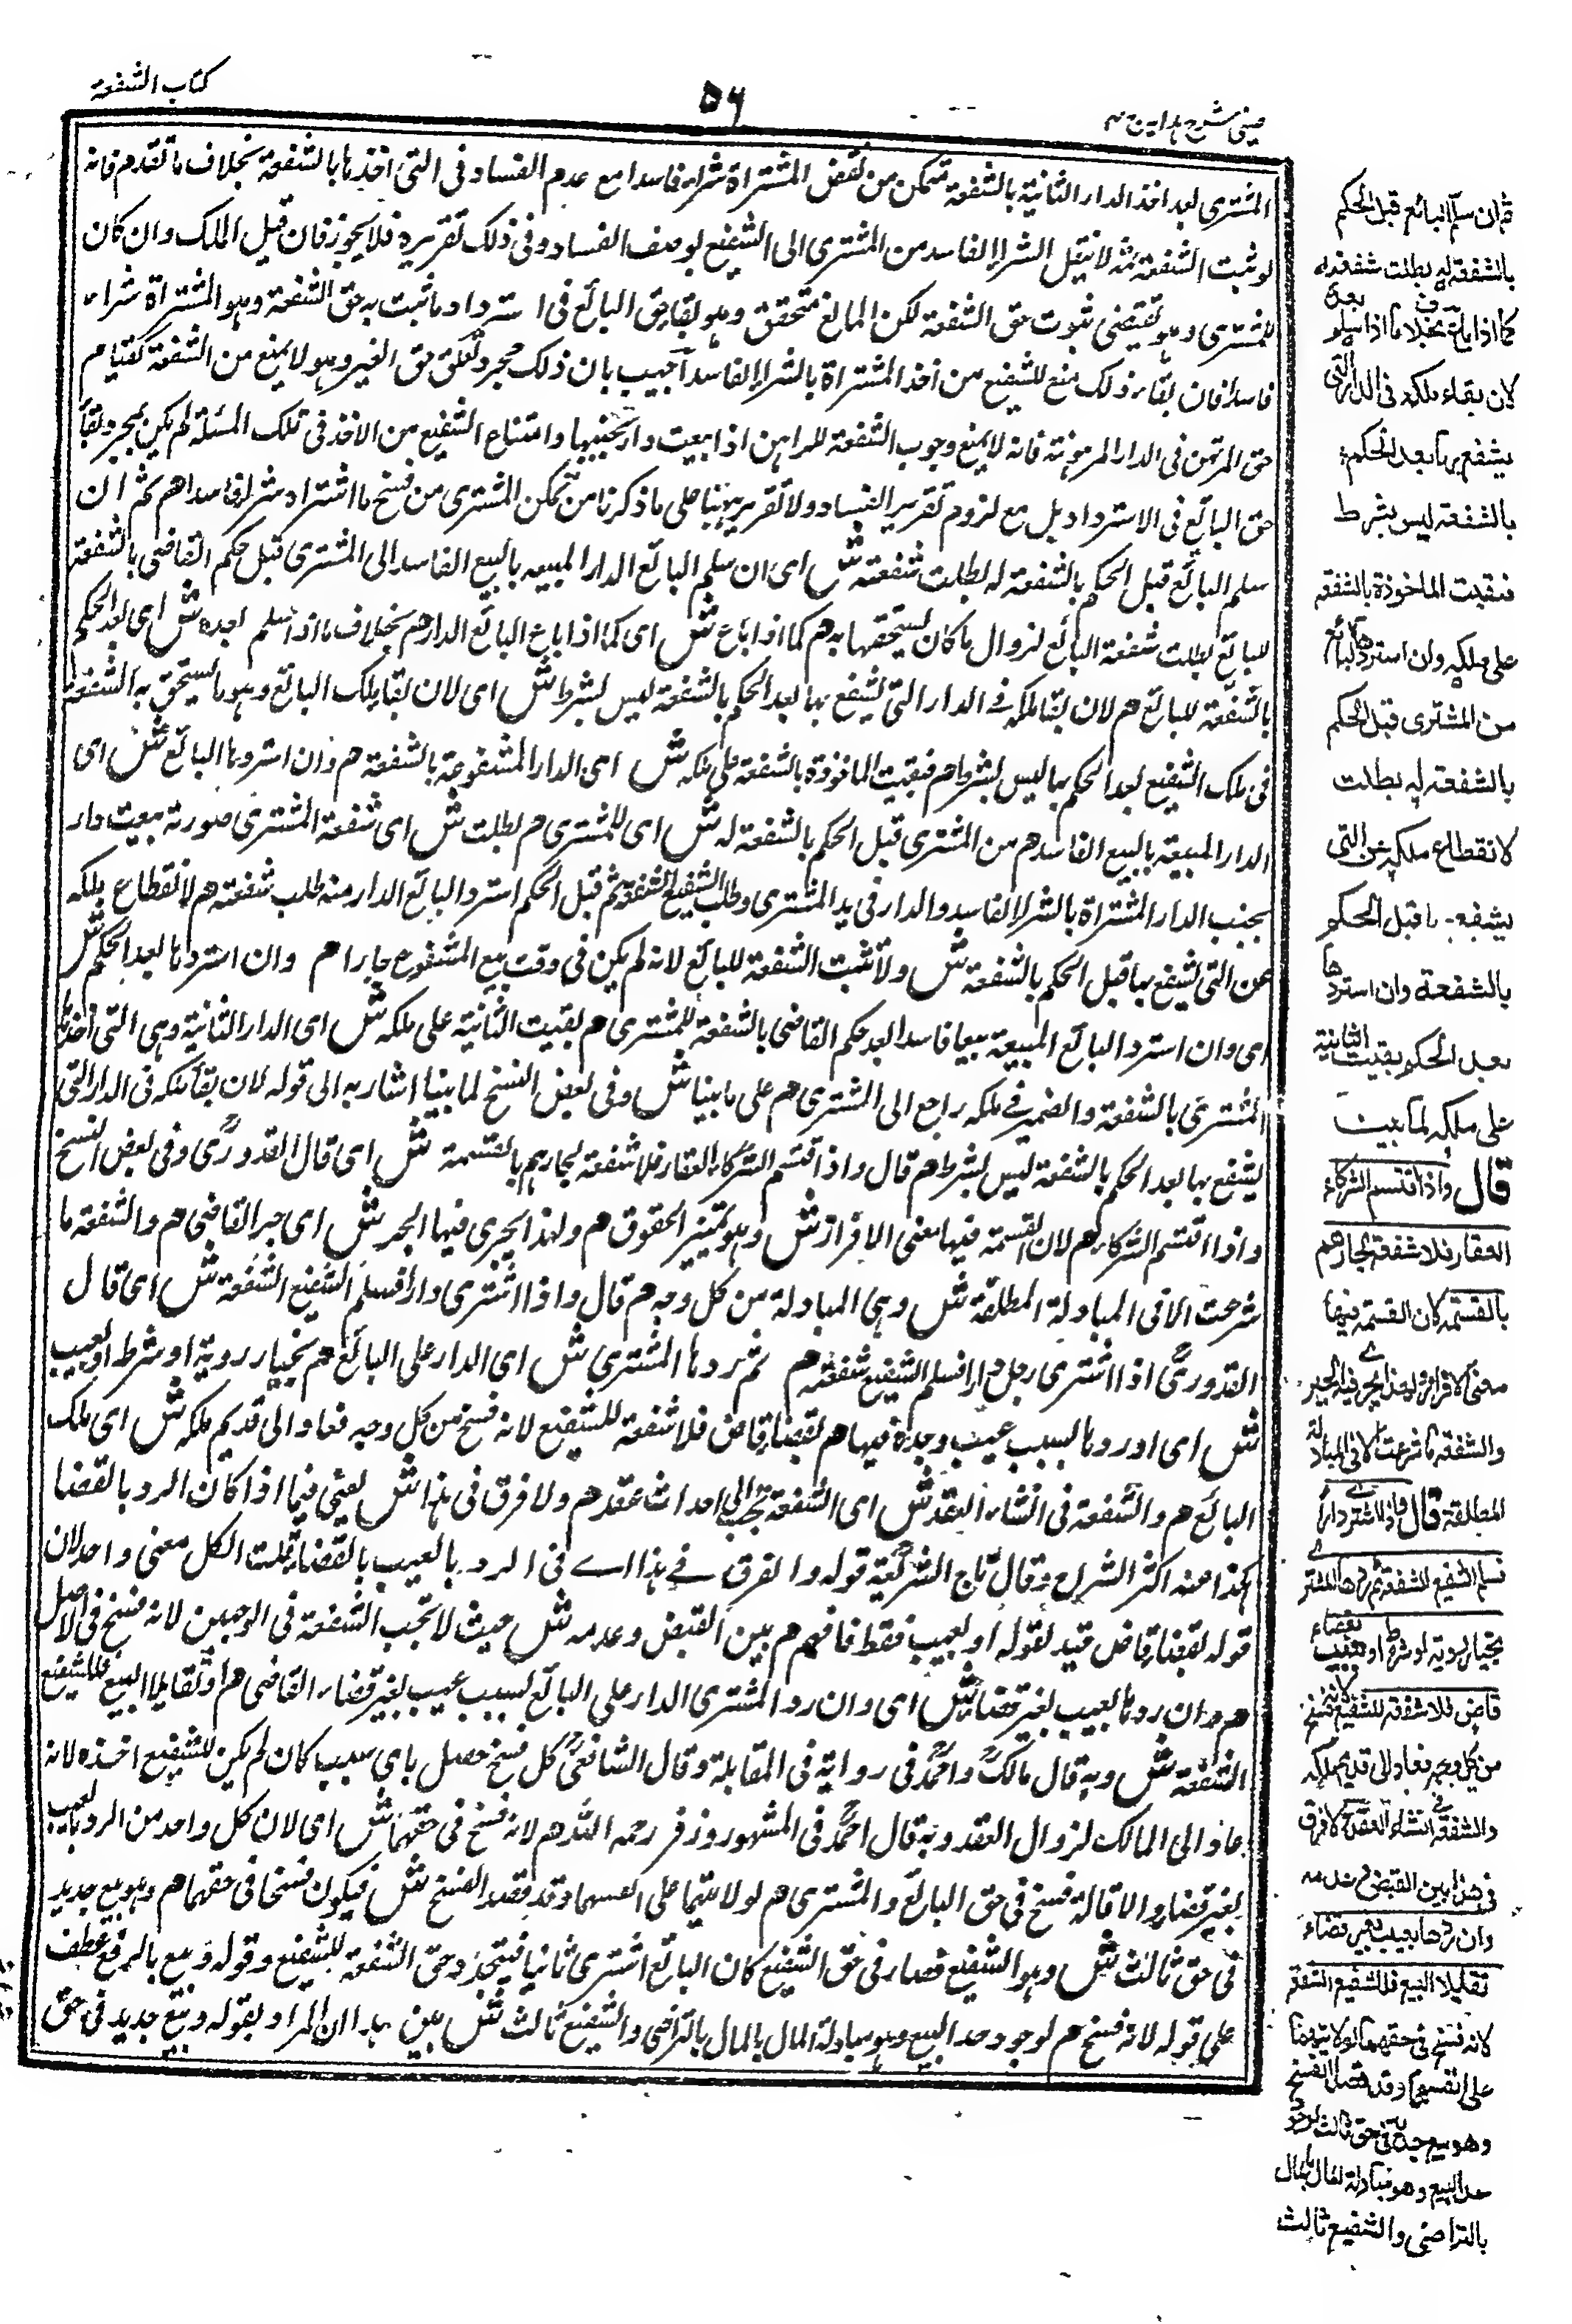 كتاب الشفعة
٥٦
عينى شرح هداية ج ٣
المشترى بعد اخذ الدار الثانية بالشفعة متمكن من نقض المشتراة شراء فاسدا مع عدم الفساد فى التى اخذها بالشفعة بخلاف ما تقدم فانه
لو ثبت الشفعة ثمه لا نتقل الشراء الفاسد من المشترى الى الشفيع بوصف الفساد وفى ذلك تقريره فلا يجوز فان قيل الملك وان كان
للمشترى وهو يقتضى ثبوت حق الشفعة لكن المانع متحقق وهو بقاء حق البائع فى استرداد ما ثبت به حق الشفعة وهو المشتراة شراء
فاسدا فان بقاء ذلك منع للشفيع من اخذ المشتراة بالشراء الفاسد اجيب بان ذلك مجرد تعلق حق الغير وهو لا يمنع من الشفعة كقيام
حق المرتهن فى الدار المرهونة فانه لا يمنع وجوب الشفعة للراهن اذا بيعت دار بجنبها وامتناع الشفيع من الاخذ فى تلك المسئلة لم يكن بمجرد بقاء
حق البائع فى الاسترداد بل مع لزوم تقرير الفساد ولا تقرير ههنا على ما ذكرنا من تمكن المشترى من فسخ ما اشتراه شراء فاسدا هم ثم ان
سلم البائع قبل الحكم بالشفعة له بطلت شفعته ش اى ان سلم البائع الدار المبيعه بالبيع الفاسد الى المشترى قبل حكم القاضى بالشفعة
للبائع بطلت شفعة البائع لزوال ما كان يستحقها به هم كما اذا باع ش اى كما اذا باع البائع الدار هم بخلاف ما اذا سلم بعده ش اى بعد الحكم
بالشفعة للبائع هم لان بقاء ملكه فى الدار التى يشفع بها بعد الحكم بالشفعة ليس بشرط ش اى لان بقاء ملك البائع وهو ما يستحق به الشفعة
فى ملك الشفيع بعد الحكم بها ليس بشرط هم فبقيت الماخوذة بالشفعة على ملكه ش اى الدار المشفوعة بالشفعة هم وان استردها البائع ش اى
الدار المبيعة بالبيع الفاسد هم من المشترى قبل الحكم بالشفعة له ش اى للمشترى هم بطلت ش اى شفعة المشترى صورته بيعت دار
بجنب الدار المشتراة بالشراء الفاسد والدار فى يد المشترى وطلب الشفيع الشفعة ثم قبل الحكم استرد البائع الدار منه طلب شفعته هم لانقطاع ملكه
عن التى يشفع بها قبل الحكم بالشفعة ش ولا تثبت الشفعة للبائع لانه لم يكن فى وقت بيع المشفوع جارا هم وان استردها بعد الحكم ش
اى وان استرد البائع المبيعة بيعا فاسدا بعد حكم القاضى بالشفعة للمشترى هم بقيت الثانية على ملكه ش اى الدار الثانية وهى التى اخذها
المشترى بالشفعة والضمير فى ملكه راجع الى المشترى هم على ما بينا ش وفى بعض النسخ لما بينا اشار به الى قوله لان بقاء ملكه فى الدار التى
يشفع بها بعد الحكم بالشفعة ليس بشرط هم قال واذا اقتسم الشركاء العقار فلا شفعة لجارهم بالقسمة ش اى قال القدورى وفى بعض النسخ
واذا اقتسم الشركاء هم لان القسمة فيها معنى الافراز ش وهو تمييز الحقوق هم ولهذا يجرى فيها الجبر ش اى جبر القاضى هم والشفعة ما
شرعت الا فى المبادلة المطلقة ش وهى المبادلة من كل وجه هم قال واذا اشترى دارا فسلم الشفيع الشفعة ش اى قال
القدورى اذا اشترى رجل دارا فسلم الشفيع شفعته هم ثم ردها المشترى ش اى الدار على البائع هم بخيار روية او شرط او بعيب
ش اى او ردها بسبب عيب وجده فيها هم بقضاء قاض فلا شفعة للشفيع لانه فسخ من كل وجه فعاد الى قديم ملكه ش اى ملك
البائع هم والشفعة فى انشاء العقد ش اى الشفعة تجب الى احداث عقد هم ولا فرق فى هذا ش يعنى فيما اذا كان الرد بالقضا
كذا عنه اكثر الشراح وقال تاج الشريعة قوله والفرق فى هذا اے فى الرد بالعيب بالقضاء قلت الكل معنى واحد لان
قوله بقضاء قاض قيد لقوله او بعيب فقط فافهم هم بين القبض وعدمه ش حيث لا تجب الشفعة فى الوجهين لانه فسخ فى الاصل
هم وان ردها بعيب بغير قضاء ش اى وان رد المشترى الدار على البائع بسبب عيب بغير قضاء القاضى هم او تقايلا البيع فللشفيع
الشفعة ش وبه قال مالك واحمد فى رواية فى المقابلة وقال الشافعى كل فسخ حصل باى سبب كان لم يكن للشفيع اخذه لانه
عاد الى المالك لزوال العقد وبه قال احمد فى المشهور وزفر رحمه الله هم لانه فسخ فى حقهما ش اى لان كل واحد من الرد بالعيب
بغير قضاء والاقالة فسخ فى حق البائع والمشترى هم لولايتهما على انفسهما وقد قصد الفسخ ش فيكون فسخا فى حقهما هم وهو بيع جديد
فى حق ثالث ش وهو الشفيع فصار فى حق الشفيع كان البائع اشترى ثانيا فيتجدد حق الشفعة للشفيع وقوله وبيع بالرفع عطف
على قوله لانه فسخ هم لوجود حد البيع وهو مبادلة المال بالمال بالتراضى والشفيع ثالث ش بين بهذا ان المراد بقوله وبيع جديد فى حق
ثم ان سلم البائع قبل الحكم
بالشفعة له بطلت شفعته
كما اذا باع بخلاف ما اذا سلم بعده
لان بقاء ملكه فى الدار التى
يشفع بها بعد الحكم
بالشفعة ليس بشرط
فبقيت الماخوذة بالشفعة
على ملكه وان استردها البائع
من المشترى قبل الحكم
بالشفعة له بطلت
لانقطاع ملكه عن التى
يشفع بها قبل الحكم
بالشفعة وان استردها
بعد الحكم بقيت الثانية
على ملكه لما بينا
قال واذا اقتسم الشركاء
العقار فلا شفعة لجارهم
بالقسمة لان القسمة فيها
معنى الافراز ولهذا يجرى فيه الجبر
والشفعة ما شرعت الا فى المبادلة
المطلقة قال واذا اشترى دارا
فسلم الشفيع الشفعة ثم ردها المشترى
بخيار روية او شرط او بعيب بقضاء
قاض فلا شفعة للشفيع لانه فسخ
من كل وجه فعاد الى قديم ملكه
والشفعة فى انشاء العقد ولا فرق
فى هذا بين القبض وعدمه
وان ردها بعيب بغير قضاء
او تقايلا البيع فللشفيع الشفعة
لانه فسخ فى حقهما لولايتهما
على انفسهما وقد قصدا الفسخ
وهو بيع جديد فى حق ثالث لوجود
حد البيع وهو مبادلة المال بالمال
بالتراضى والشفيع ثالث